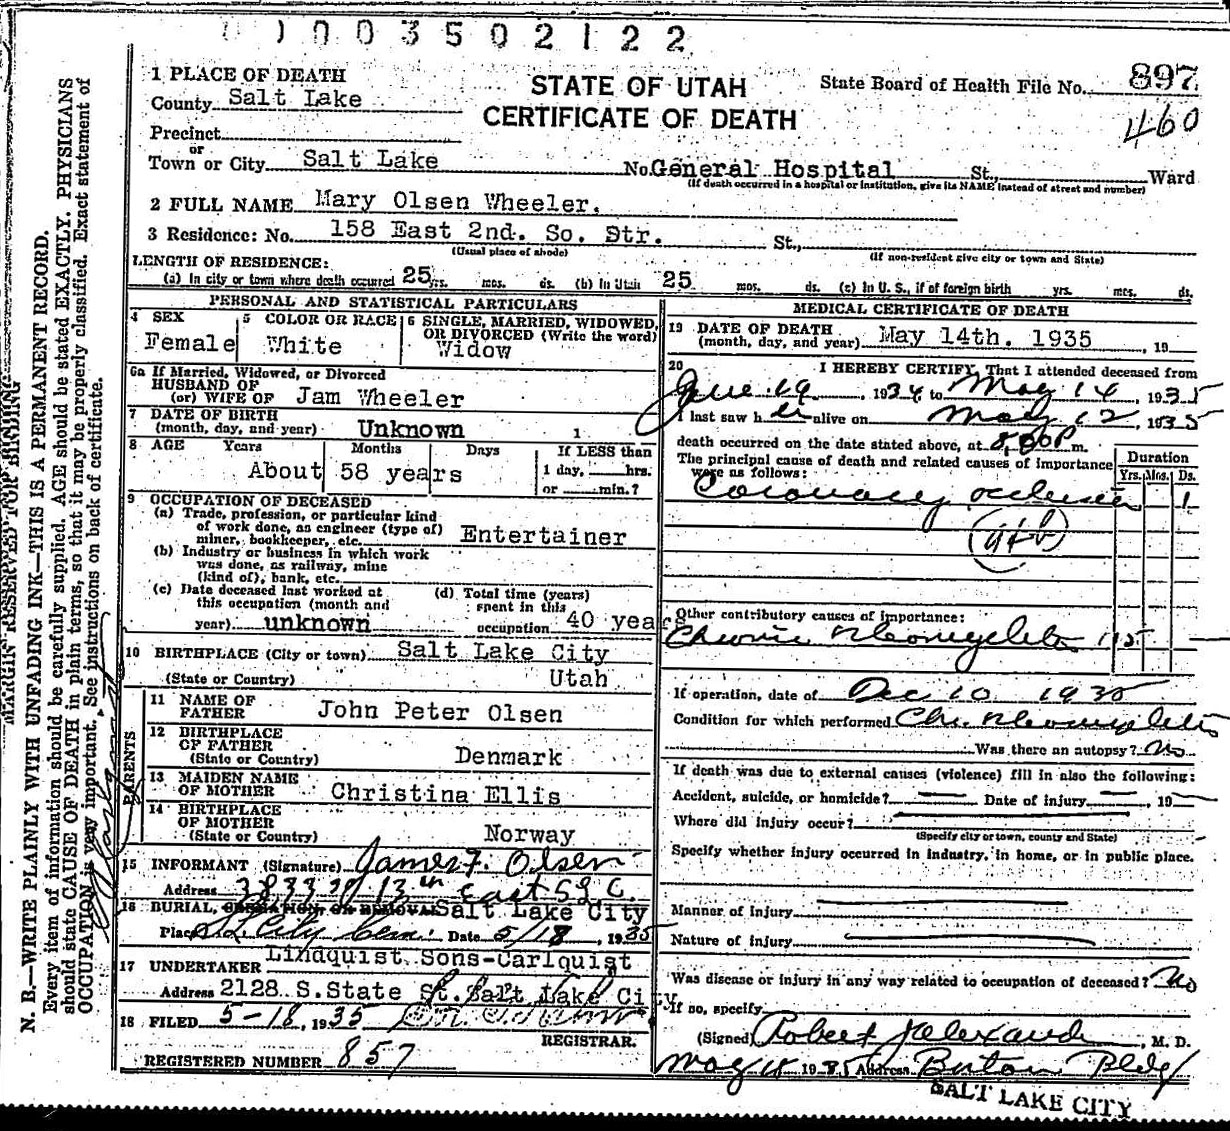 003502122
1 PLACE OF DEATH
County Salt Lake
STATE OF UTAH
CERTIFICATE OF DEATH
State Board of Health File No. 897
460
Precinct
or
Town or City Salt Lake No. General Hospital St., Ward
(If death occurred in a hospital or institution, give its NAME instead of street and number)
2 FULL NAME Mary Olsen Wheeler.
3 Residence: No. 158 East 2nd. So. Str. St.,
(Usual place of abode) (If non-resident give city or town and State)
LENGTH OF RESIDENCE:
(a) In city or town where death occurred 25 yrs. mos. ds. (b) In Utah 25 mos. ds. (c) In U. S., if of foreign birth yrs. mos. ds.
PERSONAL AND STATISTICAL PARTICULARS
4 SEX
Female
5 COLOR OR RACE
White
6 SINGLE, MARRIED, WIDOWED,
OR DIVORCED (Write the word)
Widow
6a If Married, Widowed, or Divorced
HUSBAND OF
(or) WIFE OF Jam Wheeler
7 DATE OF BIRTH
(month, day, and year) Unknown 1
8 AGE Years Months Days If LESS than
About 58 years
1 day, hrs.
or min.?
9 OCCUPATION OF DECEASED
(a) Trade, profession, or particular kind
of work done, as engineer (type of)
miner, bookkeeper, etc. Entertainer
(b) Industry or business in which work
was done, as railway, mine
(kind of), bank, etc.
(c) Date deceased last worked at
this occupation (month and
year) unknown
(d) Total time (years)
spent in this
occupation 40 years
10 BIRTHPLACE (City or town) Salt Lake City
(State or Country) Utah
PARENTS
11 NAME OF
FATHER John Peter Olsen
12 BIRTHPLACE
OF FATHER
(State or Country) Denmark
13 MAIDEN NAME
OF MOTHER Christina Ellis
14 BIRTHPLACE
OF MOTHER
(State or Country) Norway
15 INFORMANT (Signature) James F. Olsen
Address 3833 13th East S L C.
16 BURIAL, CREMATION, OR REMOVAL Salt Lake City
Place S.L. City Cem. Date 5/18, 1935
17 UNDERTAKER Lindquist Sons-Carlquist
Address 2128 S. State St. Salt Lake City
18 FILED 5-18, 1935
REGISTRAR.
REGISTERED NUMBER 857
MEDICAL CERTIFICATE OF DEATH
19 DATE OF DEATH
(month, day, and year) May 14th. 1935, 19
20 I HEREBY CERTIFY, That I attended deceased from
June 19 1934 to May 14, 1935
I last saw her alive on May 12, 1935
death occurred on the date stated above, at 8:00P m.
The principal cause of death and related causes of importance
were as follows:
Duration
Yrs. Mos. Ds.
Coronary occlusion 1
Other contributory causes of importance:
Chronic
If operation, date of Dec 10 1935
Condition for which performed Chr.
Was there an autopsy? No
If death was due to external causes (violence) fill in also the following:
Accident, suicide, or homicide? Date of injury 19
Where did injury occur?
(Specify city or town, county and State)
Specify whether injury occurred in industry, in home, or in public place.
Manner of Injury
Nature of Injury
Was disease or injury in any way related to occupation of deceased? No
If so, specify
(Signed) Robert J Alexander, M. D.
May 1935 Address Boston Bldg
SALT LAKE CITY
MARGIN RESERVED FOR BINDING
N. B.—WRITE PLAINLY WITH UNFADING INK—THIS IS A PERMANENT RECORD.
Every item of information should be carefully supplied. AGE should be stated EXACTLY. PHYSICIANS
should state CAUSE OF DEATH in plain terms, so that it may be properly classified. Exact statement of
OCCUPATION is very important. See instructions on back of certificate.